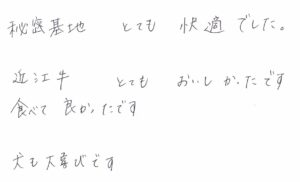 秘密基地 とても 快適 でした。
近江牛 とても おいしかったです
食べて 良かったです
犬も大喜びです